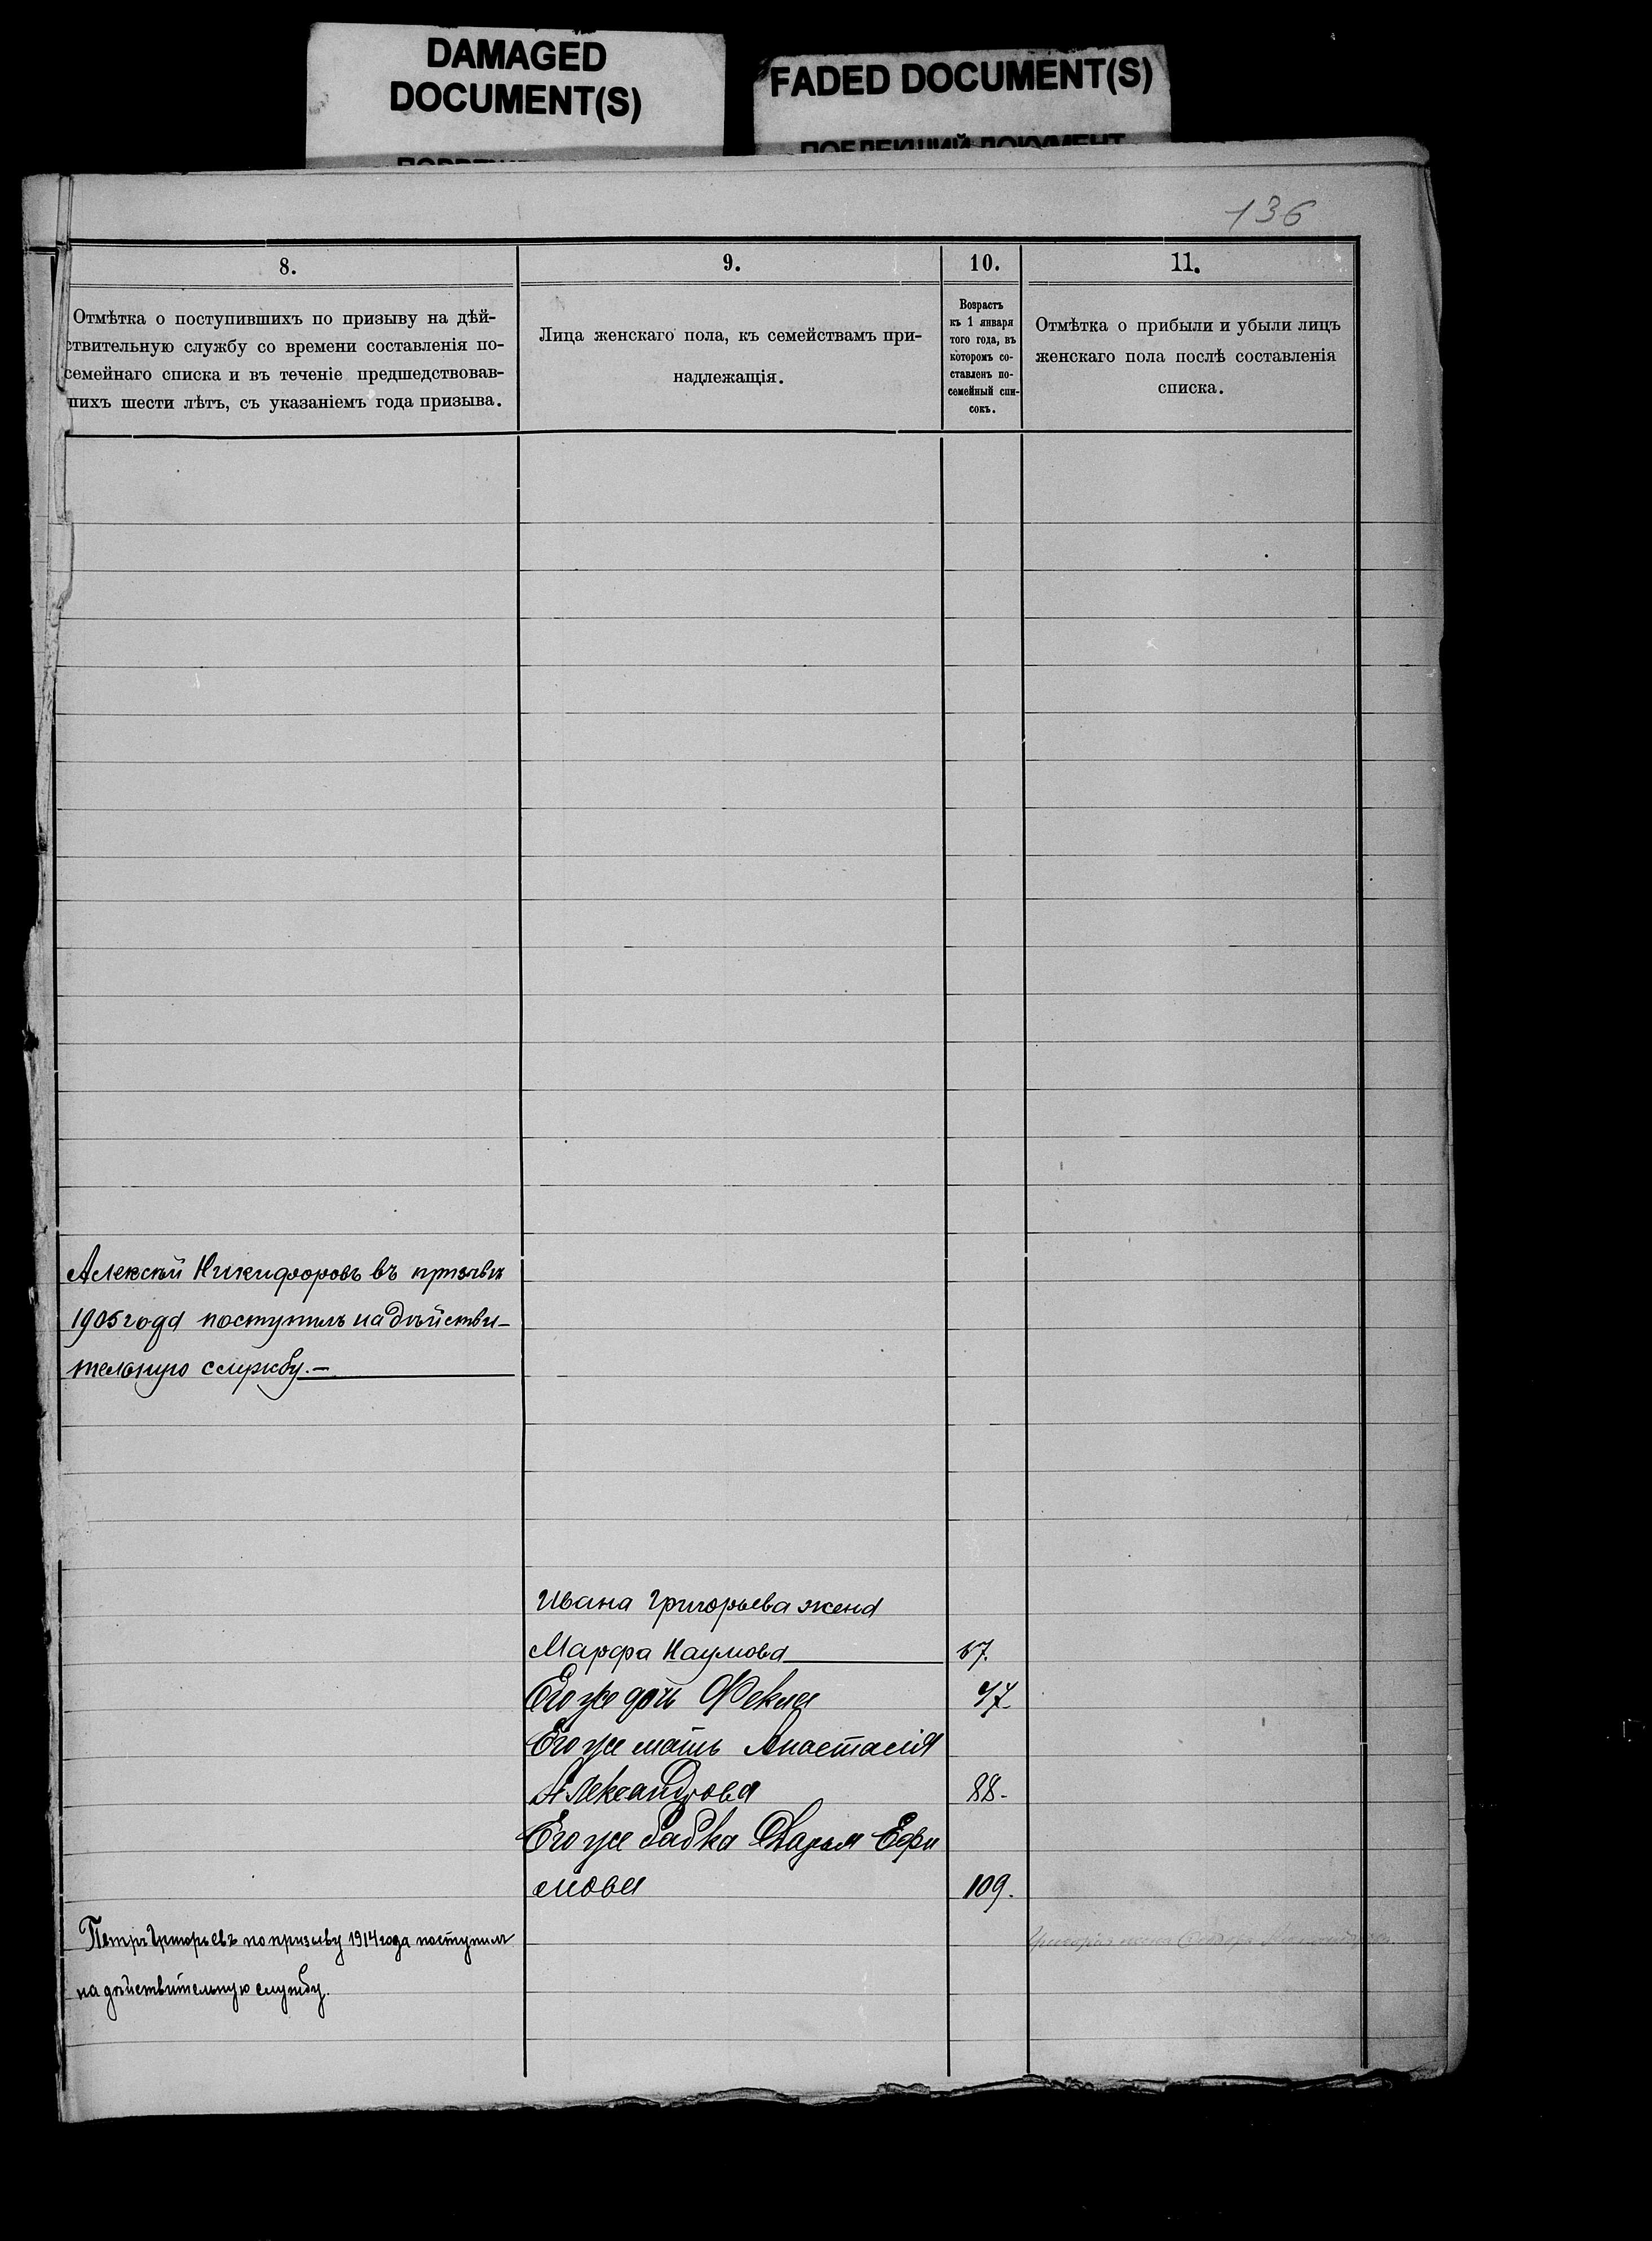 DAMAGED
DOCUMENT(S)
FADED DOCUMENT(S)
ПОБЛЕКШИЙ ДОКУМЕНТ
136
8.
9.
10.
11.
Отмѣтка о поступившихъ по призыву на дѣй-
ствительную службу со времени составленія по-
семейнаго списка и въ теченіе предшедствовав-
шихъ шести лѣтъ, съ указаніемъ года призыва.
Лица женскаго пола, къ семействамъ при-
надлежащія.
Возрастъ
къ 1 января
того года, въ
которомъ со-
ставленъ по-
семейный спи-
сокъ.
Отмѣтка о прибыли и убыли лицъ
женскаго пола послѣ составленія
списка.
Алексѣй Никифоровъ въ призывѣ
1905 года поступилъ на дѣйстви-
тельную службу.-
Ивана Григорьева жена
Марфа Наумова 67.
Его же дочь Фекла 47.
Его же мать Анастасія
Александрова 88.
Его же бабка Дарья Ефи
мова 109.
Петръ Григорьевъ по призыву 1914 года поступилъ
на дѣйствительную службу.
Григорія жена